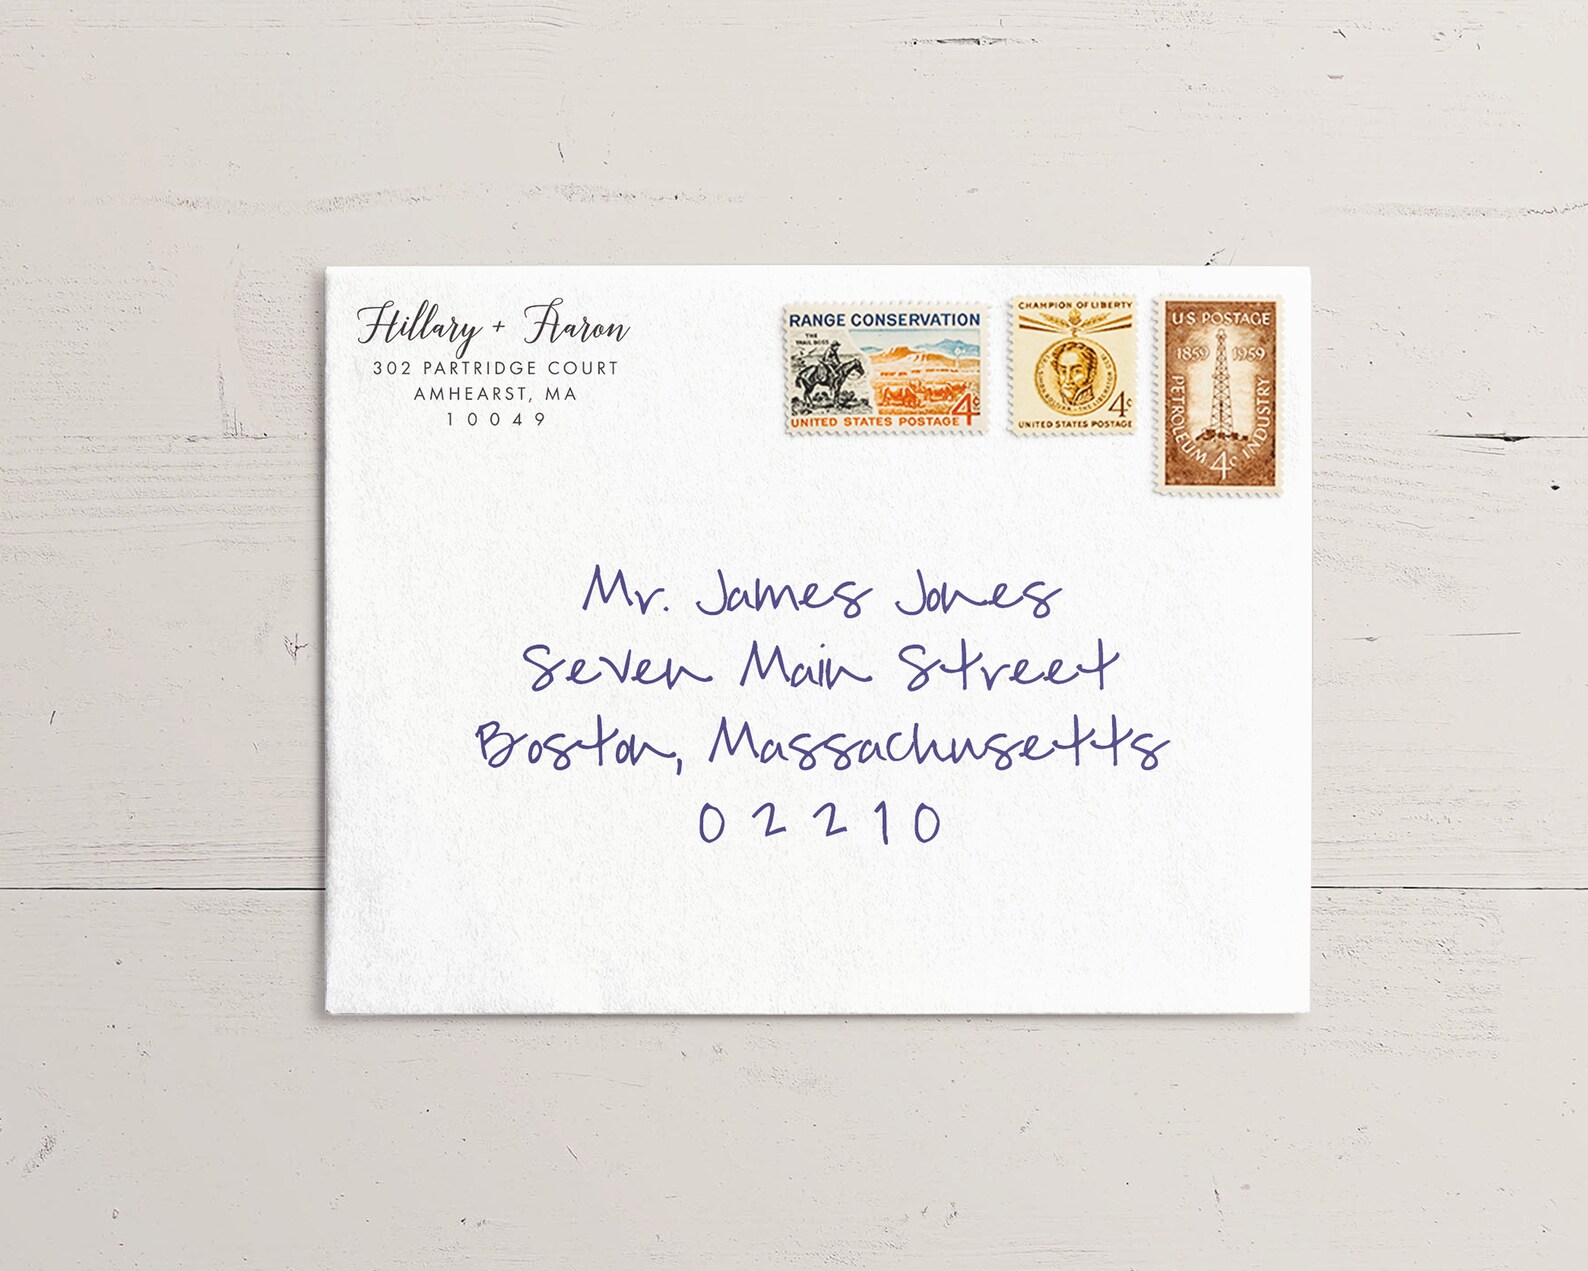 Hillary + Aaron
302 PARTRIDGE COURT
AMHEARST, MA
10049
RANGE CONSERVATION
THE
TRAIL BOSS
4¢
UNITED STATES POSTAGE
CHAMPION OF LIBERTY
4¢
UNITED STATES POSTAGE
U.S. POSTAGE
1859 1959
PETROLEUM INDUSTRY
4¢
Mr. James Jones
Seven Main Street
Boston, Massachusetts
02210